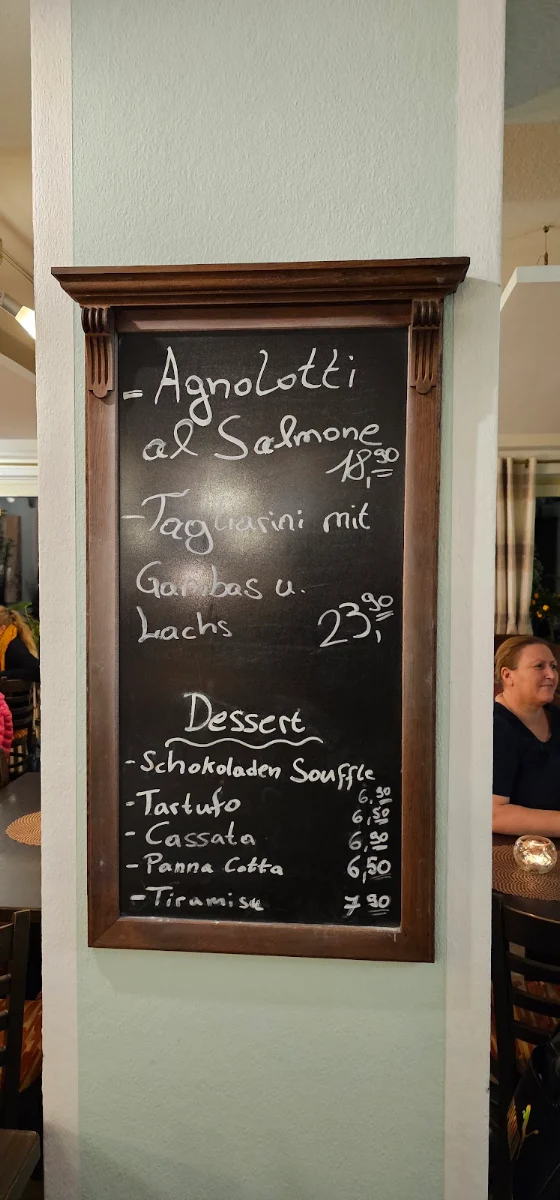 - Agnolotti
al Salmone
18,90
- Tagliarini mit
Gambas u.
Lachs 23,90
Dessert
- Schokoladen Souffle
6,90
- Tartufo 6,50
- Cassata 6,90
- Panna Cotta 6,50
- Tiramisu 7,90